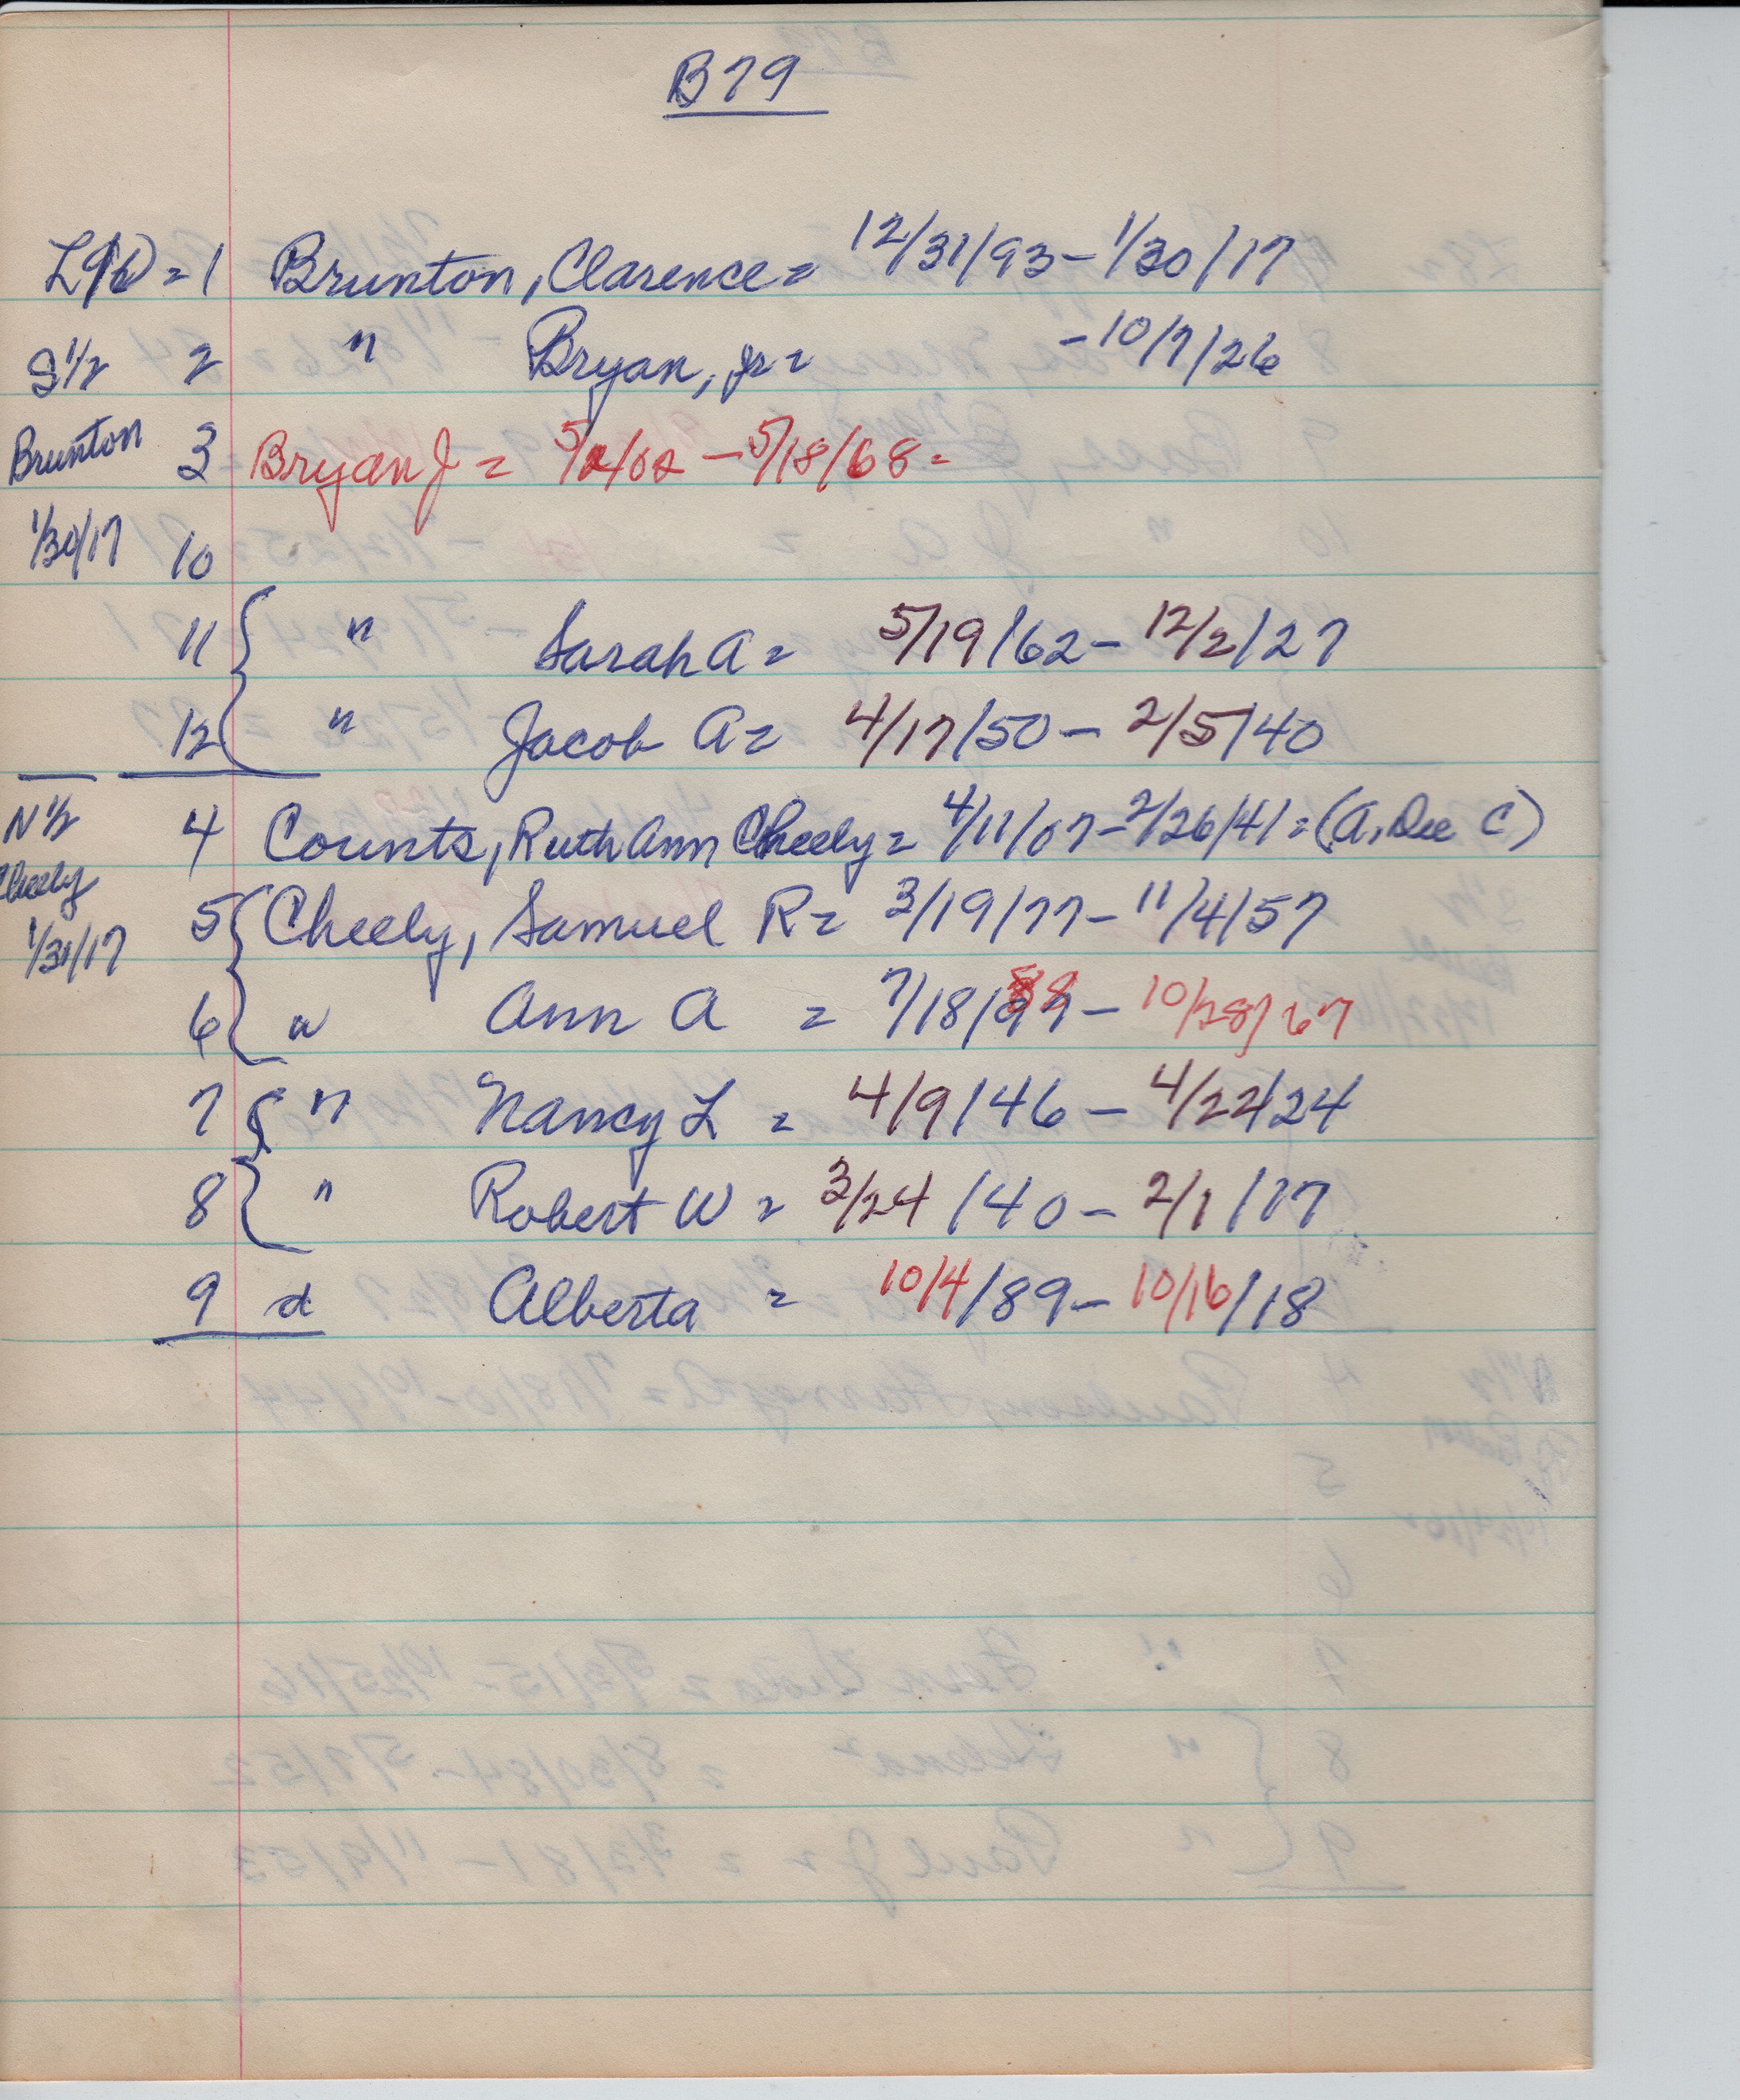 B79
= 1 Brunton, Clarence = 12/31/93 - 1/30/17
S 1/2 2 " Bryan, Jr = - 10/7/26
Brunton 3 Bryan J = 5/2/02 - 5/18/68 -
1/30/17 10
11 { " Sarah A = 5/19/62 - 12/2/27
12 { " Jacob A = 4/17/50 - 2/5/40
N 1/2 4 Counts, Ruth Ann Cheely = 4/11/07 - 2/26/41 = (A, Dee C)
Cheely 5 { Cheely, Samuel R = 3/19/77 - 11/4/57
1/31/17
6 { " Ann A = 7/18/88 - 10/28/67
7 { " Nancy L = 4/9/46 - 4/22/24
8 { " Robert W = 3/24/40 - 2/1/17
9 Alberta = 10/4/89 - 10/16/18